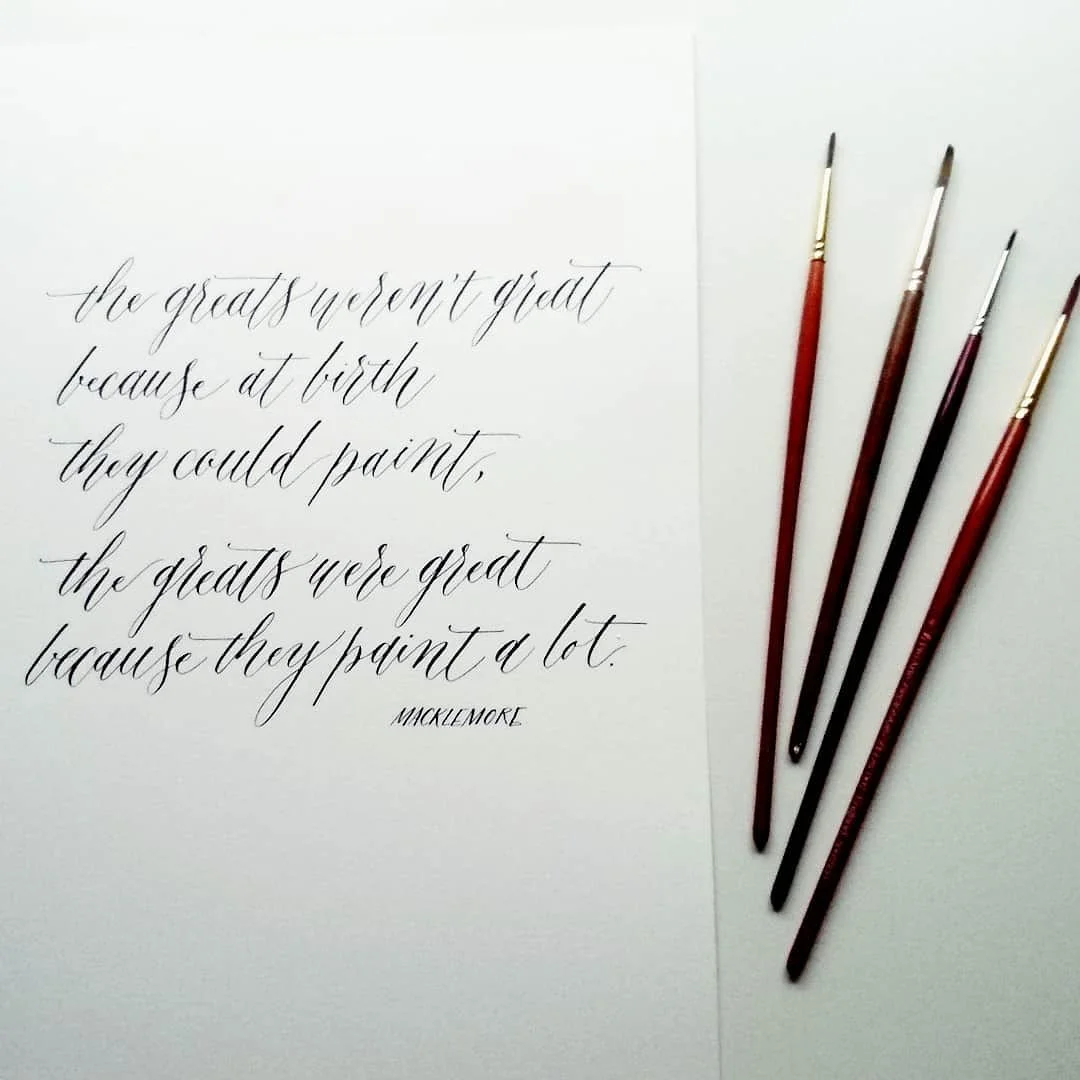 the greats weren't great
because at birth
they could paint,
the greats were great
because they paint a lot.
MACKLEMORE